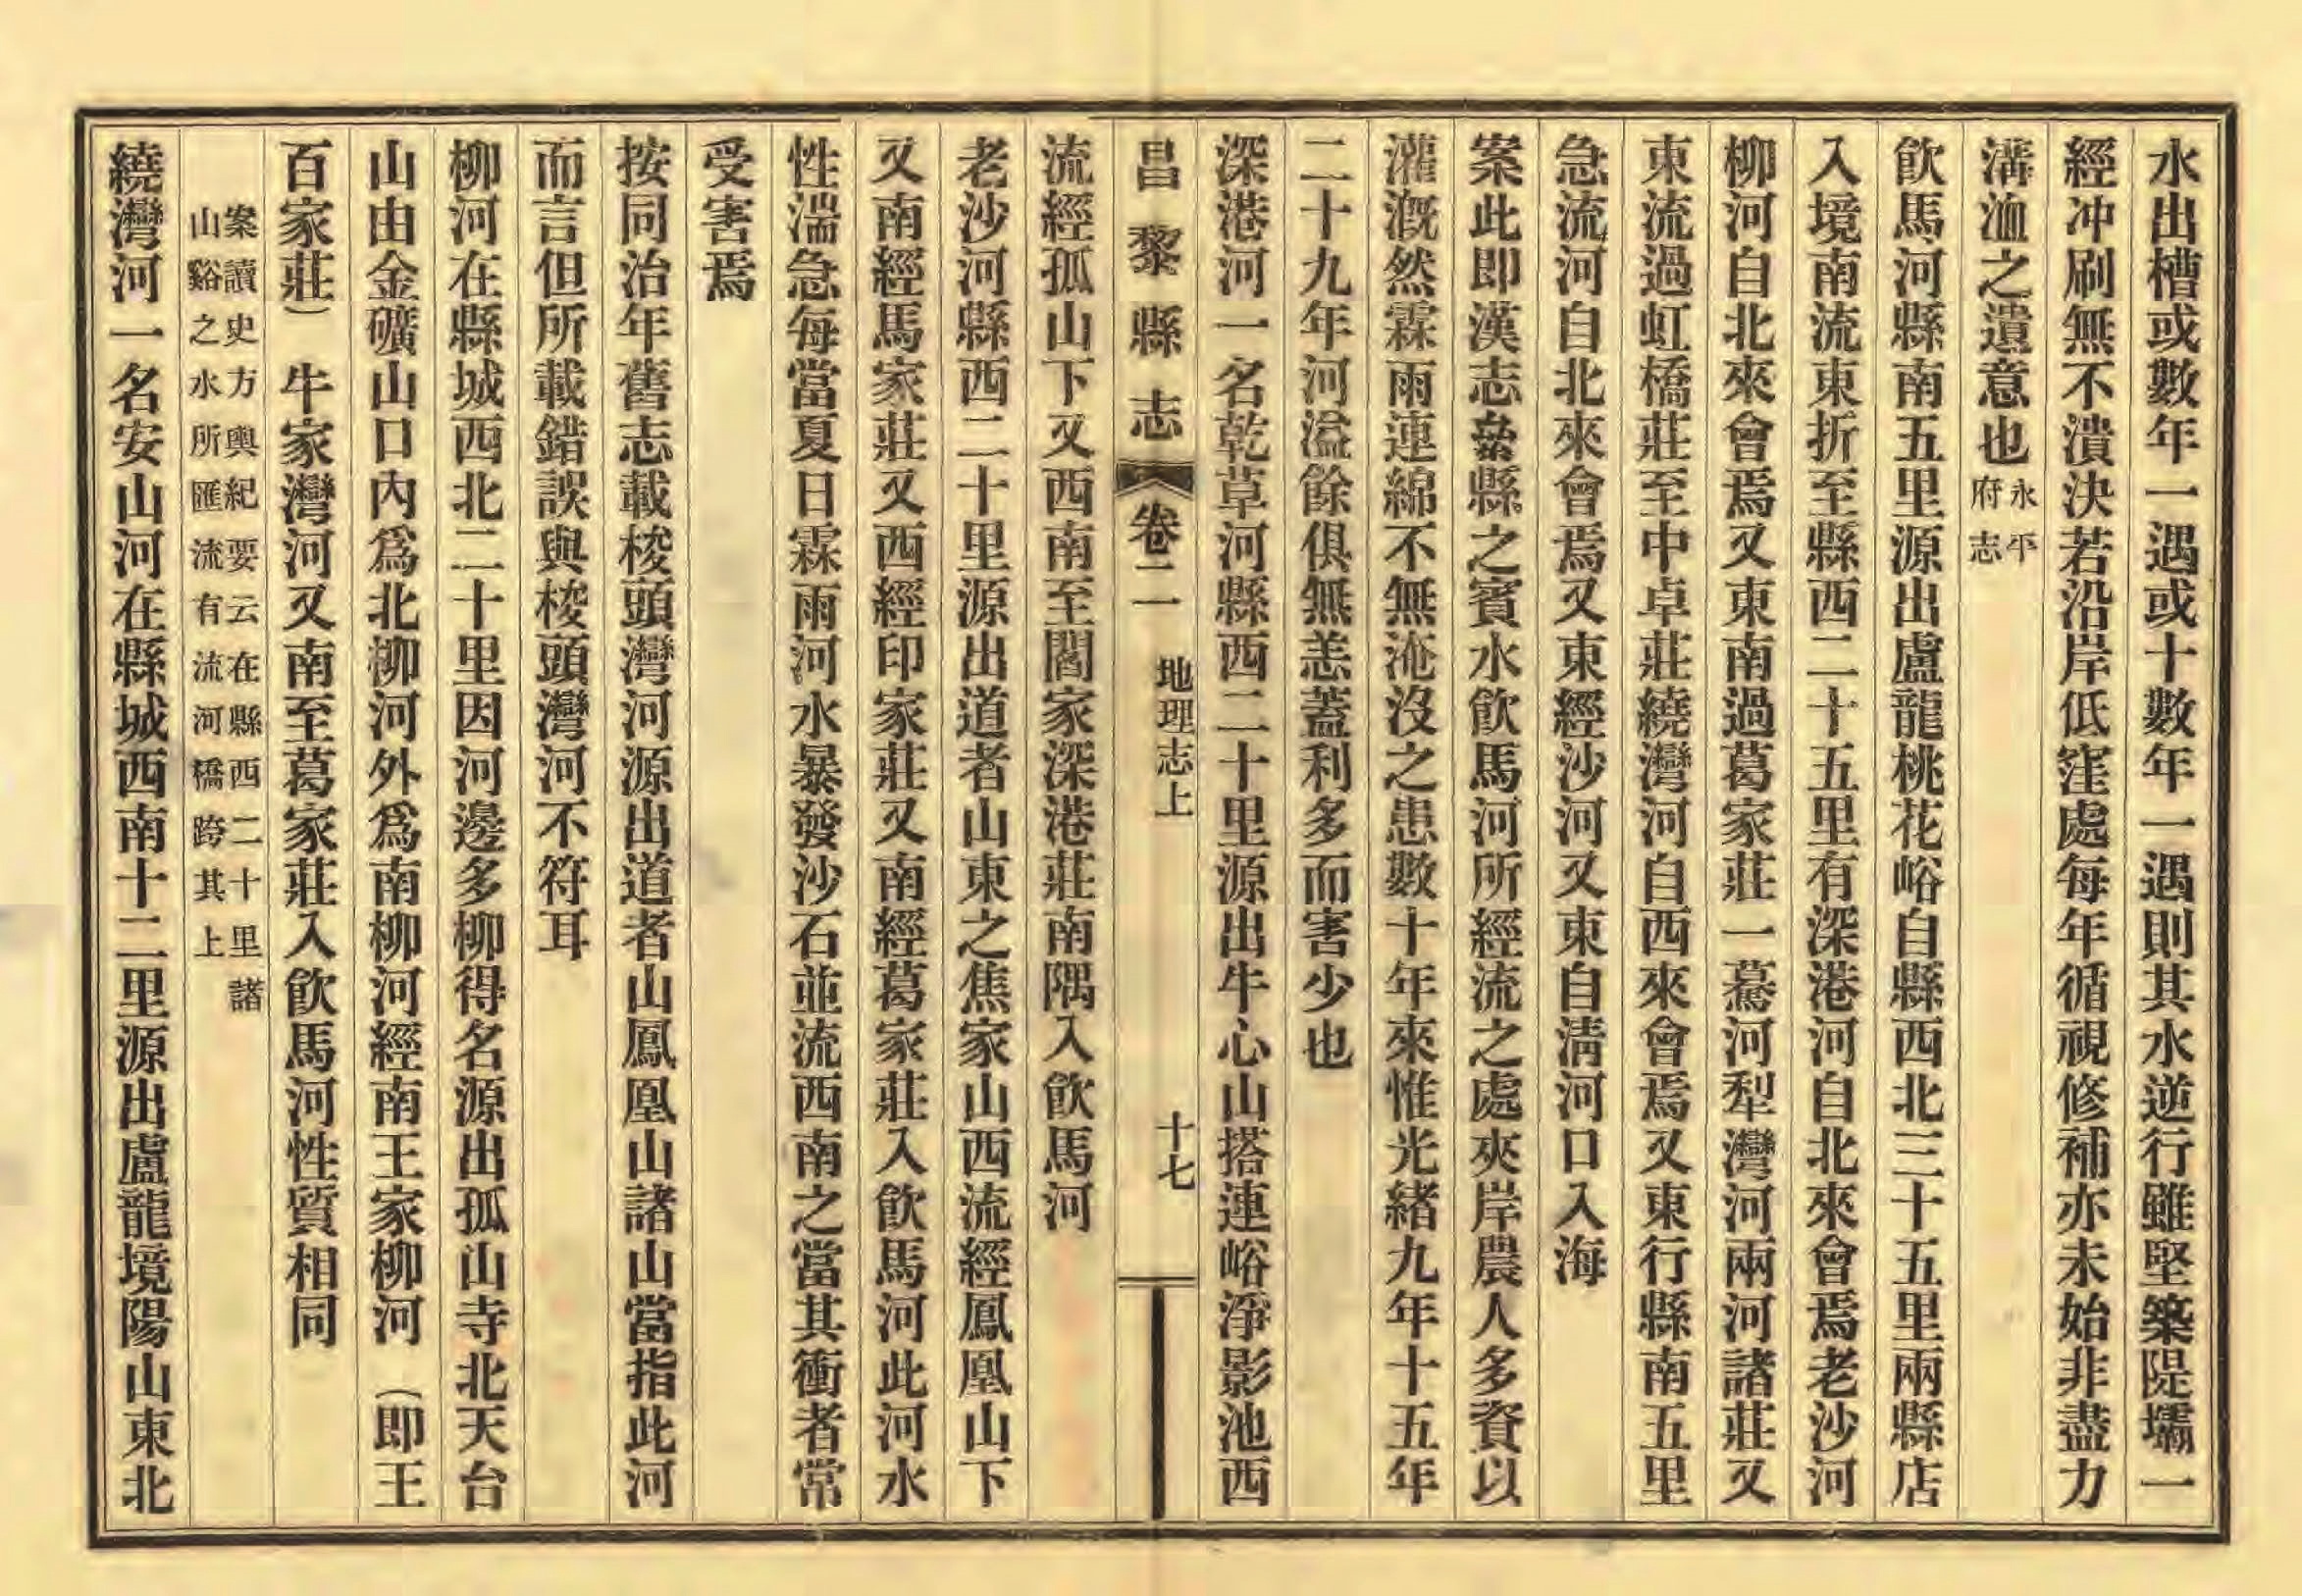 水出槽或數年一遇或十數年一遇則其水逆行雖堅築隄壩一
經冲刷無不潰決若沿岸低窪處每年循視修補亦未始非盡力
溝洫之遺意也永平府志
飮馬河縣南五里源出盧龍桃花峪自縣西北三十五里兩縣店
入境南流東折至縣西二十五里有深港河自北來會焉老沙河
柳河自北來會焉又東南過葛家莊一驀河犁灣河兩河諸莊又
東流過虹橋莊至中卓莊繞灣河自西來會焉又東行縣南五里
急流河自北來會焉又東經沙河又東自淸河口入海
案此即漢志絫縣之賓水飮馬河所經流之處夾岸農人多資以
灌漑然霖雨連綿不無淹沒之患數十年來惟光緒九年十五年
二十九年河溢餘俱無恙蓋利多而害少也
深港河一名乾草河縣西二十里源出牛心山搭連峪淨影池西
昌黎縣志 卷二 地理志上 十七
流經孤山下又西南至閻家深港莊南隅入飮馬河
老沙河縣西二十里源出道者山東之焦家山西流經鳳凰山下
又南經馬家莊又西經印家莊又南經葛家莊入飮馬河此河水
性湍急每當夏日霖雨河水暴發沙石並流西南之當其衝者常
受害焉
按同治年舊志載梭頭灣河源出道者山鳳凰山諸山當指此河
而言但所載錯誤與梭頭灣河不符耳
柳河在縣城西北二十里因河邊多柳得名源出孤山寺北天台
山由金礦山口內爲北柳河外爲南柳河經南王家柳河（即王
百家莊）牛家灣河又南至葛家莊入飮馬河性質相同
案讀史方輿紀要云在縣西二十里諸
山谿之水所匯流有流河橋跨其上
繞灣河一名安山河在縣城西南十二里源出盧龍境陽山東北